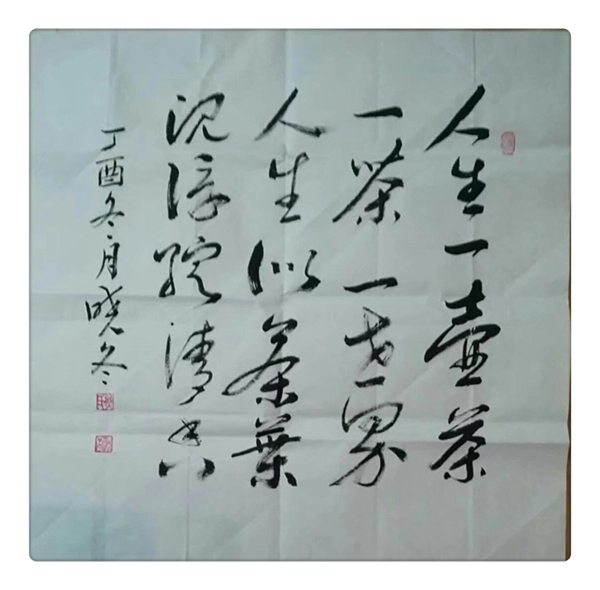 人生一壶茶
一茶一世界
人生似茶葉
沉浮绽清香
丁酉冬月晓冬